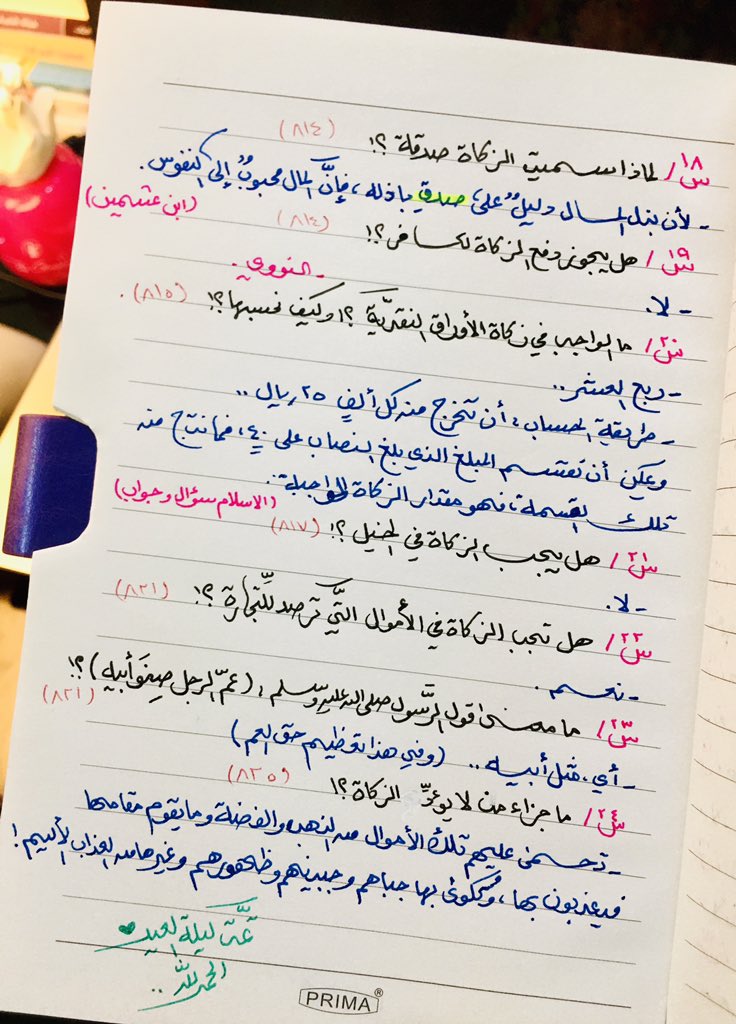 س١٨/ لماذا سميت الزكاة صدقة ؟! (٨١٤)
- لأن بذل المال دليلٌ على صدق باذله، فإنَّ المال محبوبٌ إلى النفوس.
(ابن عثيمين)
س١٩/ هل يجوز دفع الزكاة لكافر؟! (٨١٤)
- لا. - النووي.
س٢٠/ ما الواجب في زكاة الأوراق النقديَّة ؟! وكيف نحسبها؟! (٨١٥).
- ربع العشر..
- طريقة الحساب، أن تخرج من كل ألفٍ ٢٥ ريال..
ويمكن أن تقسم المبلغ الذي بلغ النصاب على ٤٠، فما نتج من
تلك القسمة، فهو مقدار الزكاة الواجبة. (الاسلام سؤال وجواب)
س٢١/ هل يجب الزكاة في الخيل؟! (٨١٧)
- لا.
س٢٢/ هل تجب الزكاة في الأموال التَّي ترصد للِّتجارة ؟! (٨٢١)
- نعم.
س٢٣/ ما معنى قول الرَّسول صلى الله عليه وسلم، (عمّ الرجل صِنوَ أبيه)؟!
(٨٢١)
- أي، مثل أبيه.. (وفي هذا تعظيم حق العم)
س٢٤/ ما جزاء من لا يؤدِّ الزكاة؟! (٨٢٥)
- تحمى عليهم تلك الأموال من الذهب والفضة وما يقوم مقامها
فيعذبون بها، وتُكوى بها جباهم وجبينهم وظهورهم وغيرها من العذاب الأليم!
تمَّت ليلة العيد
الحمدلله..
PRIMA®